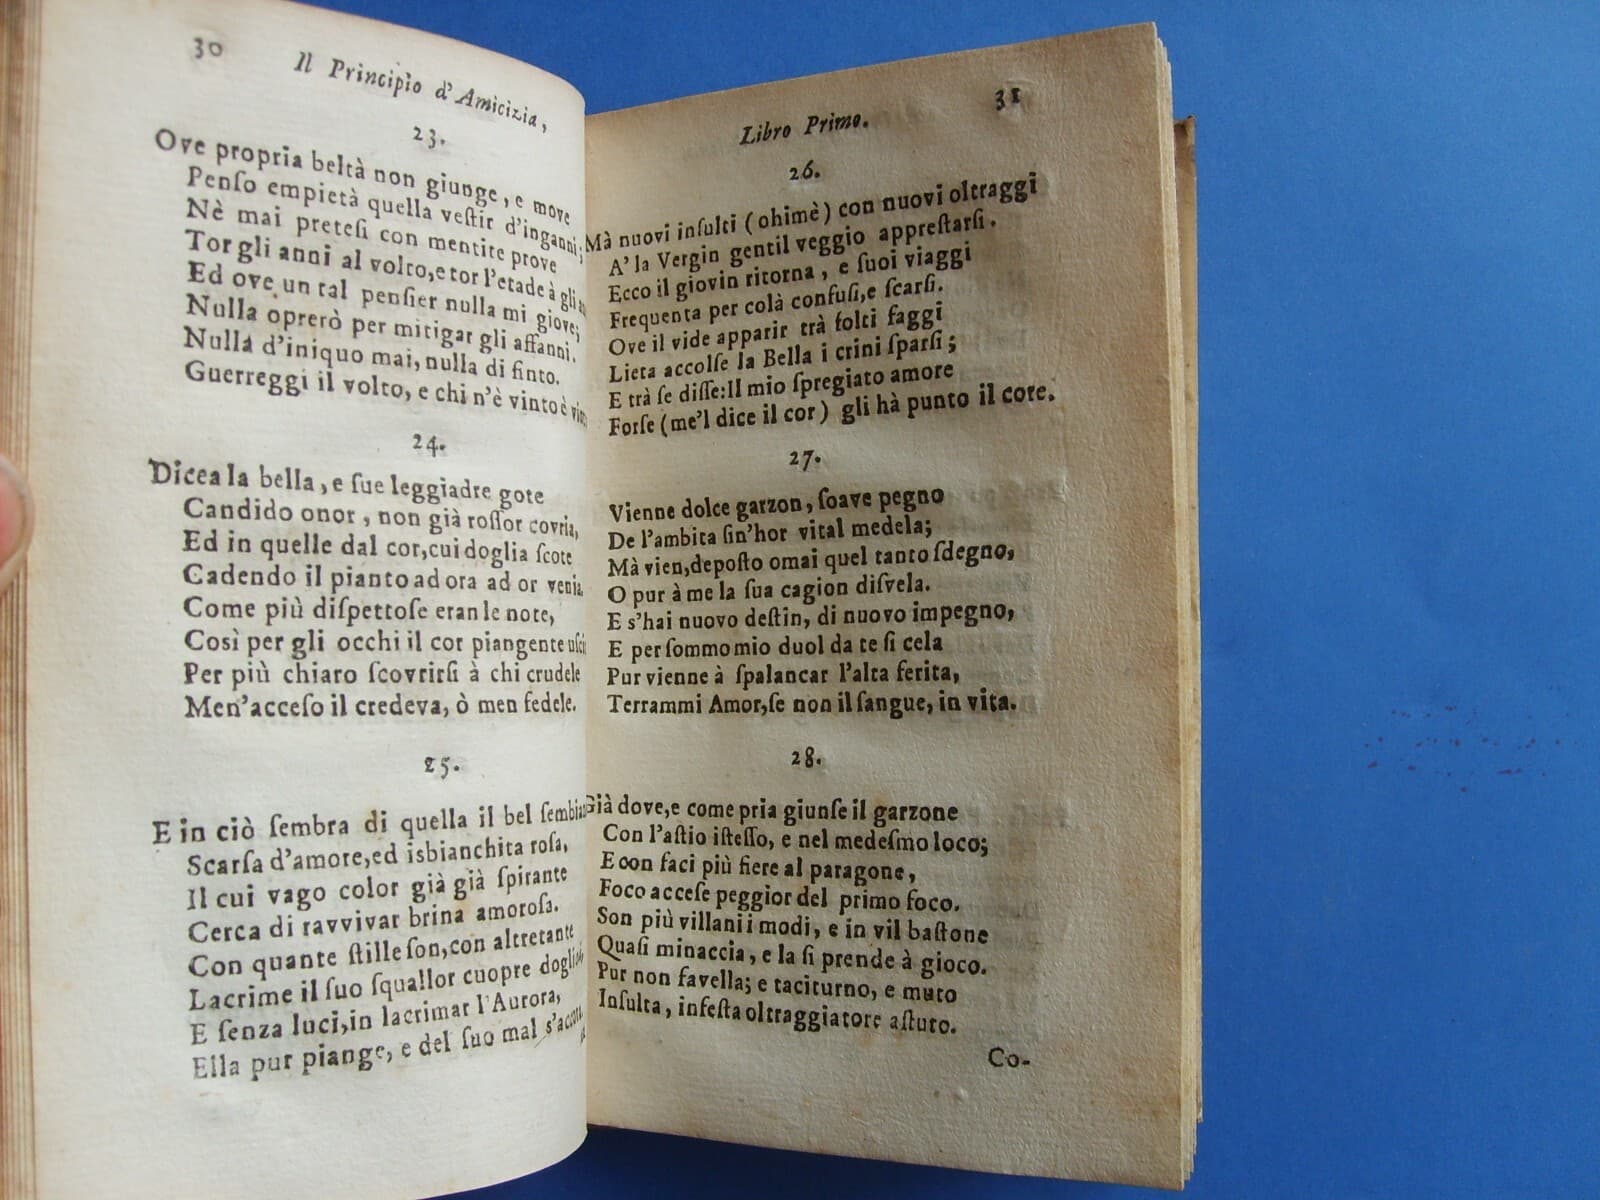 30
Il Principio d'Amicizia,
23.
Ove propria beltà non giunge, e move
Penſo empietà quella veſtir d'inganni;
Nè mai preteſi con mentite prove
Tor gli anni al volto, e tor l'etade à gli
Ed ove un tal penſier nulla mi giove;
Nulla oprerò per mitigar gli affanni.
Nulla d'iniquo mai, nulla di finto.
Guerreggi il volto, e chi n'è vinto è
24.
Dicea la bella, e ſue leggiadre gote
Candido onor, non già roſſor covria,
Ed in quelle dal cor, cui doglia ſcote
Cadendo il pianto ad ora ad or venia.
Come più diſpettoſe eran le note,
Così per gli occhi il cor piangente
Per più chiaro ſcovrirſi à chi crudele
Men'acceſo il credeva, ò men fedele.
25.
E in ciò ſembra di quella il bel
Scarſa d'amore, ed isbianchita roſa,
Il cui vago color già già ſpirante
Cerca di ravvivar brina amoroſa.
Con quante ſtille ſon, con altretante
Lacrime il ſuo ſquallor cuopre
E ſenza luci, in lacrimar l'Aurora,
Ella pur piange, e del ſuo mal
31
Libro Primo.
26.
Mà nuovi inſulti (ohimè) con nuovi oltraggi
A' la Vergin gentil veggio appreſtarſi.
Ecco il giovin ritorna, e ſuoi viaggi
Frequenta per colà confuſi, e ſcarſi.
Ove il vide apparir trà folti faggi
Lieta accolſe la Bella i crini ſparſi;
E trà ſe diſſe: Il mio ſpregiato amore
Forſe (me'l dice il cor) gli hà punto il core.
27.
Vienne dolce garzon, ſoave pegno
De l'ambita ſin'hor vital medela;
Mà vien, depoſto omai quel tanto ſdegno,
O pur à me la ſua cagion diſvela.
E s'hai nuovo deſtin, di nuovo impegno,
E per ſommo mio duol da te ſi cela
Pur vienne à ſpalancar l'alta ferita,
Terrammi Amor, ſe non il ſangue, in vita.
28.
Già dove, e come pria giunſe il garzone
Con l'aſtio iſteſſo, e nel medeſmo loco;
E con faci più fiere al paragone,
Foco acceſe peggior del primo foco.
Son più villani i modi, e in vil baſtone
Quaſi minaccia, e la ſi prende à gioco.
Pur non favella; e taciturno, e muto
Inſulta, infeſta oltraggiatore aſtuto.
Co-